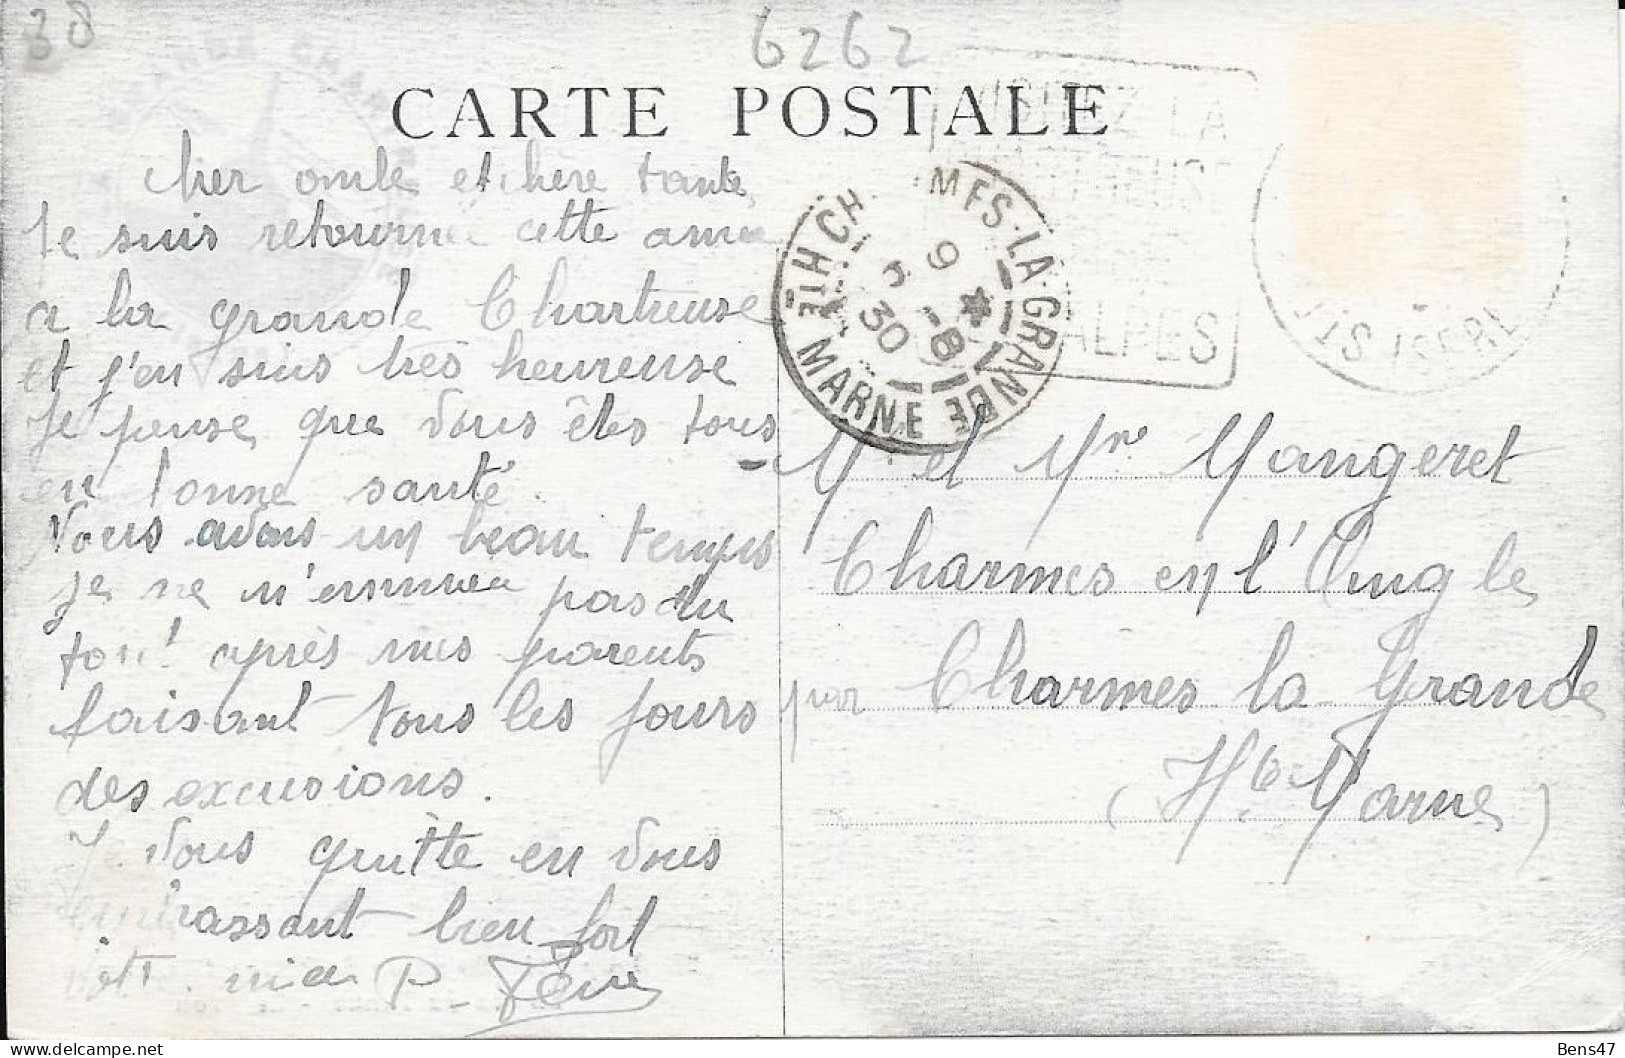 38
6262
CARTE POSTALE
VISITEZ LA
ALPES
ISERE
CHARMES-LA-GRANDE
HTE MARNE
9 -8
30
Cher oncle et chère tante
Je suis retournée cette année
a la grande Chartreuse
et j'en suis très heureuse
Je pense que vous êtes tous
en bonne santé.
Nous avons un beau temps
je ne m'ennuie pas du
tout après mes parents
faisant tous les jours
des excusions.
Je vous quitte en vous
embrassant bien fort
votre nièce P.
Mr et Mme Mangeret
Charmes en l'Angle
par Charmes la Grande
(Hte Marne)
Bens47